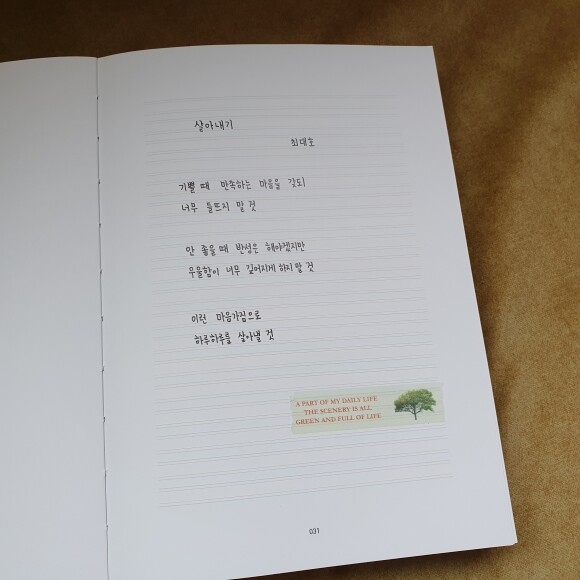 살아내기
최대호
기쁠 때 만족하는 마음을 갖되
너무 들뜨지 말 것
안 좋을 때 반성은 해야겠지만
우울함이 너무 깊어지게 하지 말 것
이런 마음가짐으로
하루하루를 살아낼 것
A PART OF MY DAILY LIFE
THE SCENERY IS ALL
GREEN AND FULL OF LIFE
031